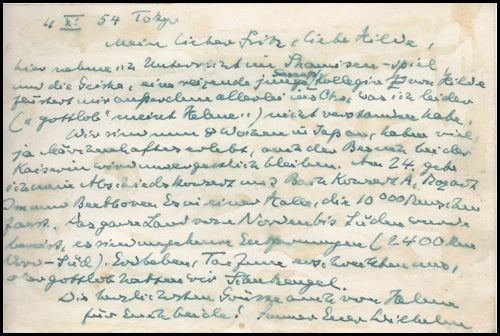 4 XI. 54 Tokyo
Mein lieber Fritz, liebe Hilde,
hier nehme ich Unterricht im Shamisen-spiel
und die Geisha, eine reizende junge Kollegin von Hilde
flüstert mir ausserdem allerlei ins Ohr, was ich leider
("gottlob" meint Helene) nicht verstanden habe.
Wir sind nun 8 Wochen in Japan, haben viel
ja märchenhaftes erlebt, auch der Besuch bei der
Kaiserin wird unvergesslich bleiben. Am 24. gebe
ich mein Abschiedskonzert mit Bach Konzert A, Mozart
Dmoll Beethoven Es in einer Halle, die 10 000 Menschen
fasst. Das ganze Land von Norden bis Süden wurde
bereist, es sind ungeheure Entfernungen (2400 km
Nord-Süd). Erdbeben, Taifune
aber gottlob hatten wir Schutzengel.
Die herzlichsten Grüsse auch von Helene
für Euch beide! Immer Euer Wilhelm